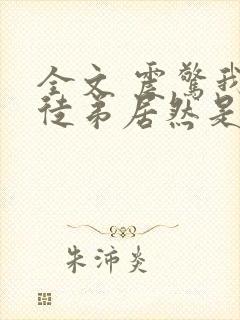 全文 震惊我
徒弟居然是
朱沛炎